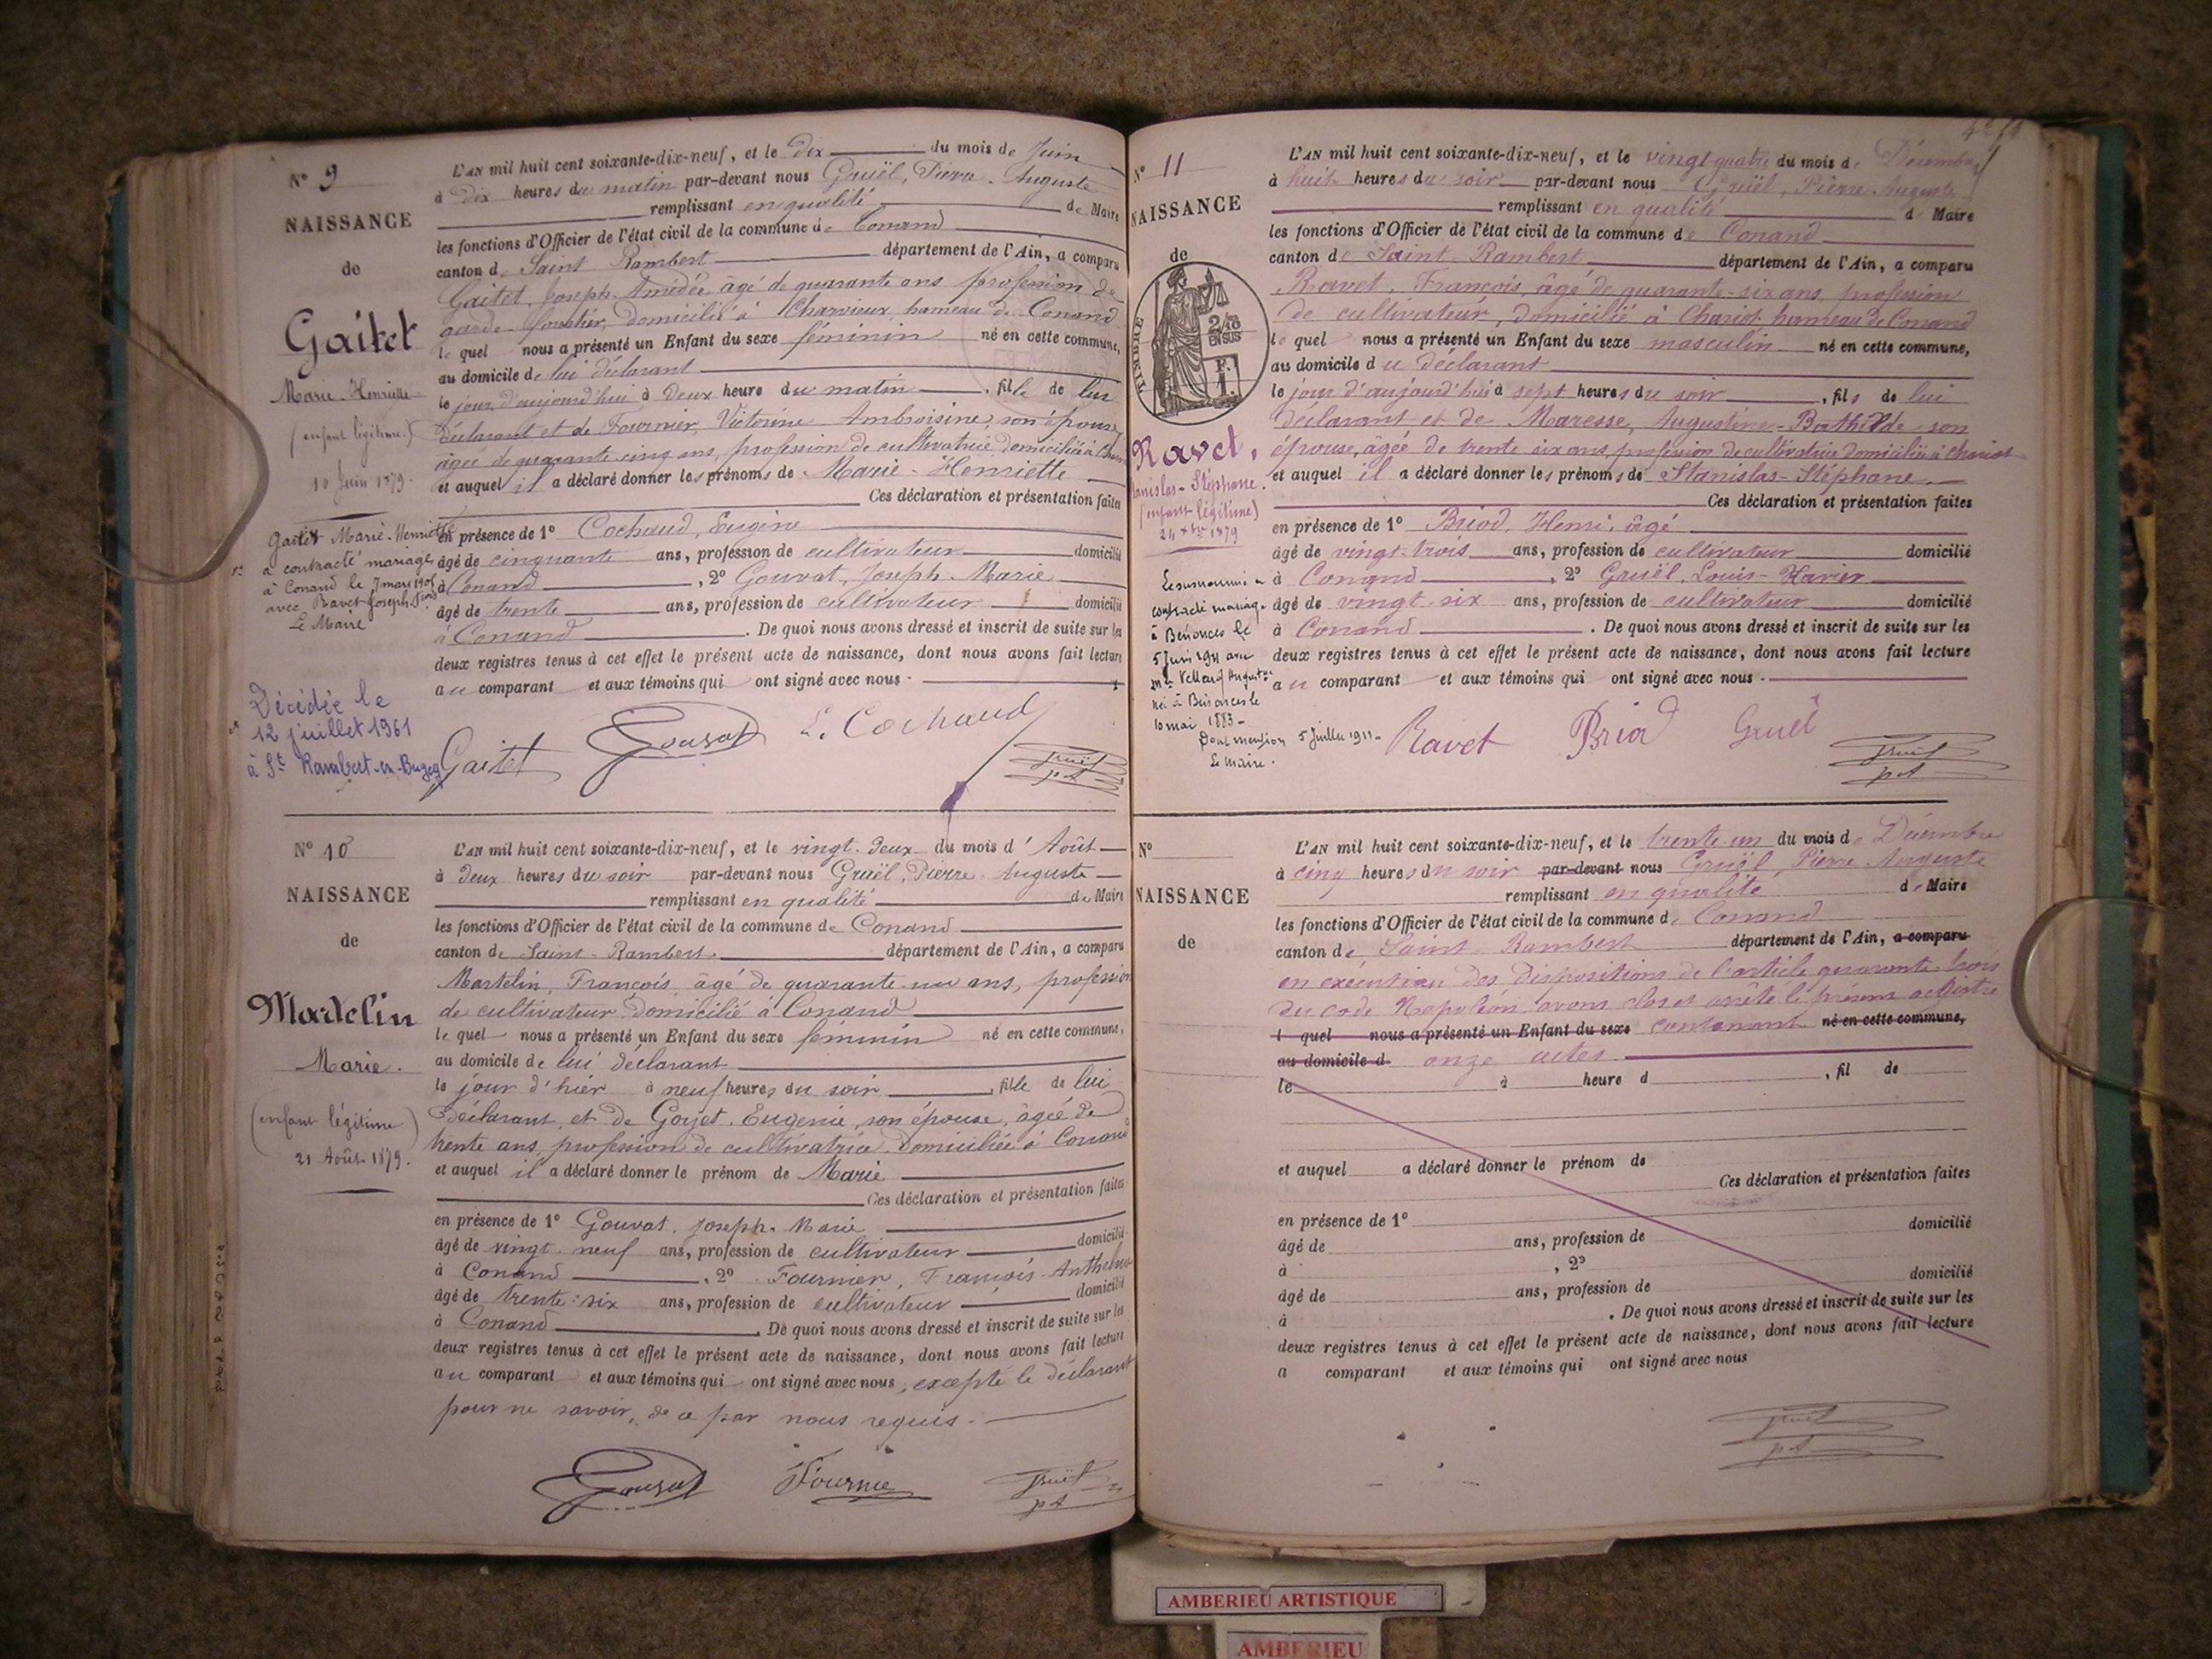 Nº 9
NAISSANCE
de
Gaitet
Marie-Henriette
(enfant légitime)
10 Juin 1879.
Gaitet Marie-Henriette
a contracté mariage
à Conand le 7 mars 1905
avec Ravet Joseph
Le Maire
Décédée le
12 juillet 1961
à St Rambert-en-Bugey
L'AN mil huit cent soixante-dix-neuf, et le Dix du mois de Juin
à Dix heures du matin par-devant nous Gruël, Pierre-Auguste
remplissant en qualité de Maire
les fonctions d'Officier de l'état civil de la commune de Conand
canton de Saint Rambert département de l'Ain, a comparu
Gaitet, Joseph-Amédée, âgé de quarante ans profession de
garde-forestier, domicilié à Charvieux, hameau de Conand
le quel nous a présenté un Enfant du sexe féminin né en cette commune,
au domicile de lui déclarant
le jour d'aujourd'hui à Deux heure du matin, fille de lui
déclarant et de Fournier, Victorine Ambroisine, son épouse,
âgée de quarante-cinq ans, profession de cultivatrice domiciliée à
et auquel il a déclaré donner les prénoms de Marie-Henriette
Ces déclaration et présentation faites
en présence de 1º Cochaud, Eugène
âgé de cinquante ans, profession de cultivateur domicilié
à Conand, 2º Gouvat, Joseph-Marie
âgé de trente ans, profession de cultivateur domicilié
à Conand. De quoi nous avons dressé et inscrit de suite sur les
deux registres tenus à cet effet le présent acte de naissance, dont nous avons fait lecture
au comparant et aux témoins qui ont signé avec nous.
Gaitet Gouvat E. Cochaud Gruël
Nº 10
NAISSANCE
de
Martelin
Marie.
(enfant légitime)
21 Août 1879.
L'AN mil huit cent soixante-dix-neuf, et le vingt-deux du mois d'Août
à Deux heures du soir par-devant nous Gruël, Pierre-Auguste
remplissant en qualité de Maire
les fonctions d'Officier de l'état civil de la commune de Conand
canton de Saint-Rambert. département de l'Ain, a comparu
Martelin, François, âgé de quarante-un ans, profession
de cultivateur domicilié à Conand
le quel nous a présenté un Enfant du sexe féminin né en cette commune,
au domicile de lui déclarant
le jour d'hier à neuf heures du soir, fille de lui
déclarant, et de Goyet, Eugénie, son épouse, âgée de
trente ans, profession de cultivatrice domiciliée à Conand
et auquel il a déclaré donner le prénom de Marie
Ces déclaration et présentation faites
en présence de 1º Gouvat, Joseph-Marie
âgé de vingt-neuf ans, profession de cultivateur domicilié
à Conand, 2º Fournier, François-Anthelme
âgé de trente-six ans, profession de cultivateur domicilié
à Conand. De quoi nous avons dressé et inscrit de suite sur les
deux registres tenus à cet effet le présent acte de naissance, dont nous avons fait lecture
au comparant et aux témoins qui ont signé avec nous, excepté le déclarant
pour ne savoir, de ce par nous requis.
Gouvat Fournier Gruël
Nº 11
NAISSANCE
de
TIMBRE
2/10
EN SUS
Ravet,
Stanislas-Stéphane.
(enfant légitime)
24 Xbre 1879
Le susnommé a
contracté mariage
à Bénonces le
5 Juin 1911 avec
née à Bénonces le
10 mai 1883-
Dont mention 5 Juillet 1911-
Le maire.
L'AN mil huit cent soixante-dix-neuf, et le vingt-quatre du mois de Décembre
à huit heures du soir par-devant nous Gruël, Pierre-Auguste
remplissant en qualité de Maire
les fonctions d'Officier de l'état civil de la commune de Conand
canton de Saint-Rambert département de l'Ain, a comparu
Ravet, François, âgé de quarante-six ans, profession
de cultivateur, domicilié à Chariot hameau de Conand
le quel nous a présenté un Enfant du sexe masculin né en cette commune,
au domicile du déclarant
le jour d'aujourd'hui à sept heures du soir, fils de lui
déclarant et de Maresse, Augustine-Bathilde son
épouse, âgée de trente six ans, profession de cultivatrice domiciliée à Chariot
et auquel il a déclaré donner les prénoms de Stanislas-Stéphane.
Ces déclaration et présentation faites
en présence de 1º Briod, Henri, âgé
âgé de vingt-trois ans, profession de cultivateur domicilié
à Conand, 2º Gruël, Louis-Xavier
âgé de vingt-six ans, profession de cultivateur domicilié
à Conand. De quoi nous avons dressé et inscrit de suite sur les
deux registres tenus à cet effet le présent acte de naissance, dont nous avons fait lecture
au comparant et aux témoins qui ont signé avec nous.
Ravet Briod Gruël Gruël
Nº
NAISSANCE
de
L'AN mil huit cent soixante-dix-neuf, et le trente-un du mois de Décembre
à cinq heures du soir par-devant nous Gruël, Pierre-Auguste
remplissant en qualité de Maire
les fonctions d'Officier de l'état civil de la commune de Conand
canton de Saint-Rambert département de l'Ain, a comparu
en exécution des dispositions de l'article quarante-trois
du code Napoléon avons clos et arrêté le présent registre
l quel nous a présenté un Enfant du sexe contenant né en cette commune,
au domicile d onze actes.
le à heure d, fil de
et auquel a déclaré donner le prénom de
Ces déclaration et présentation faites
en présence de 1º
âgé de ans, profession de domicilié
à , 2º
âgé de ans, profession de domicilié
à . De quoi nous avons dressé et inscrit de suite sur les
deux registres tenus à cet effet le présent acte de naissance, dont nous avons fait lecture
a comparant et aux témoins qui ont signé avec nous
Gruël
AMBERIEU ARTISTIQUE
AMBERIEU